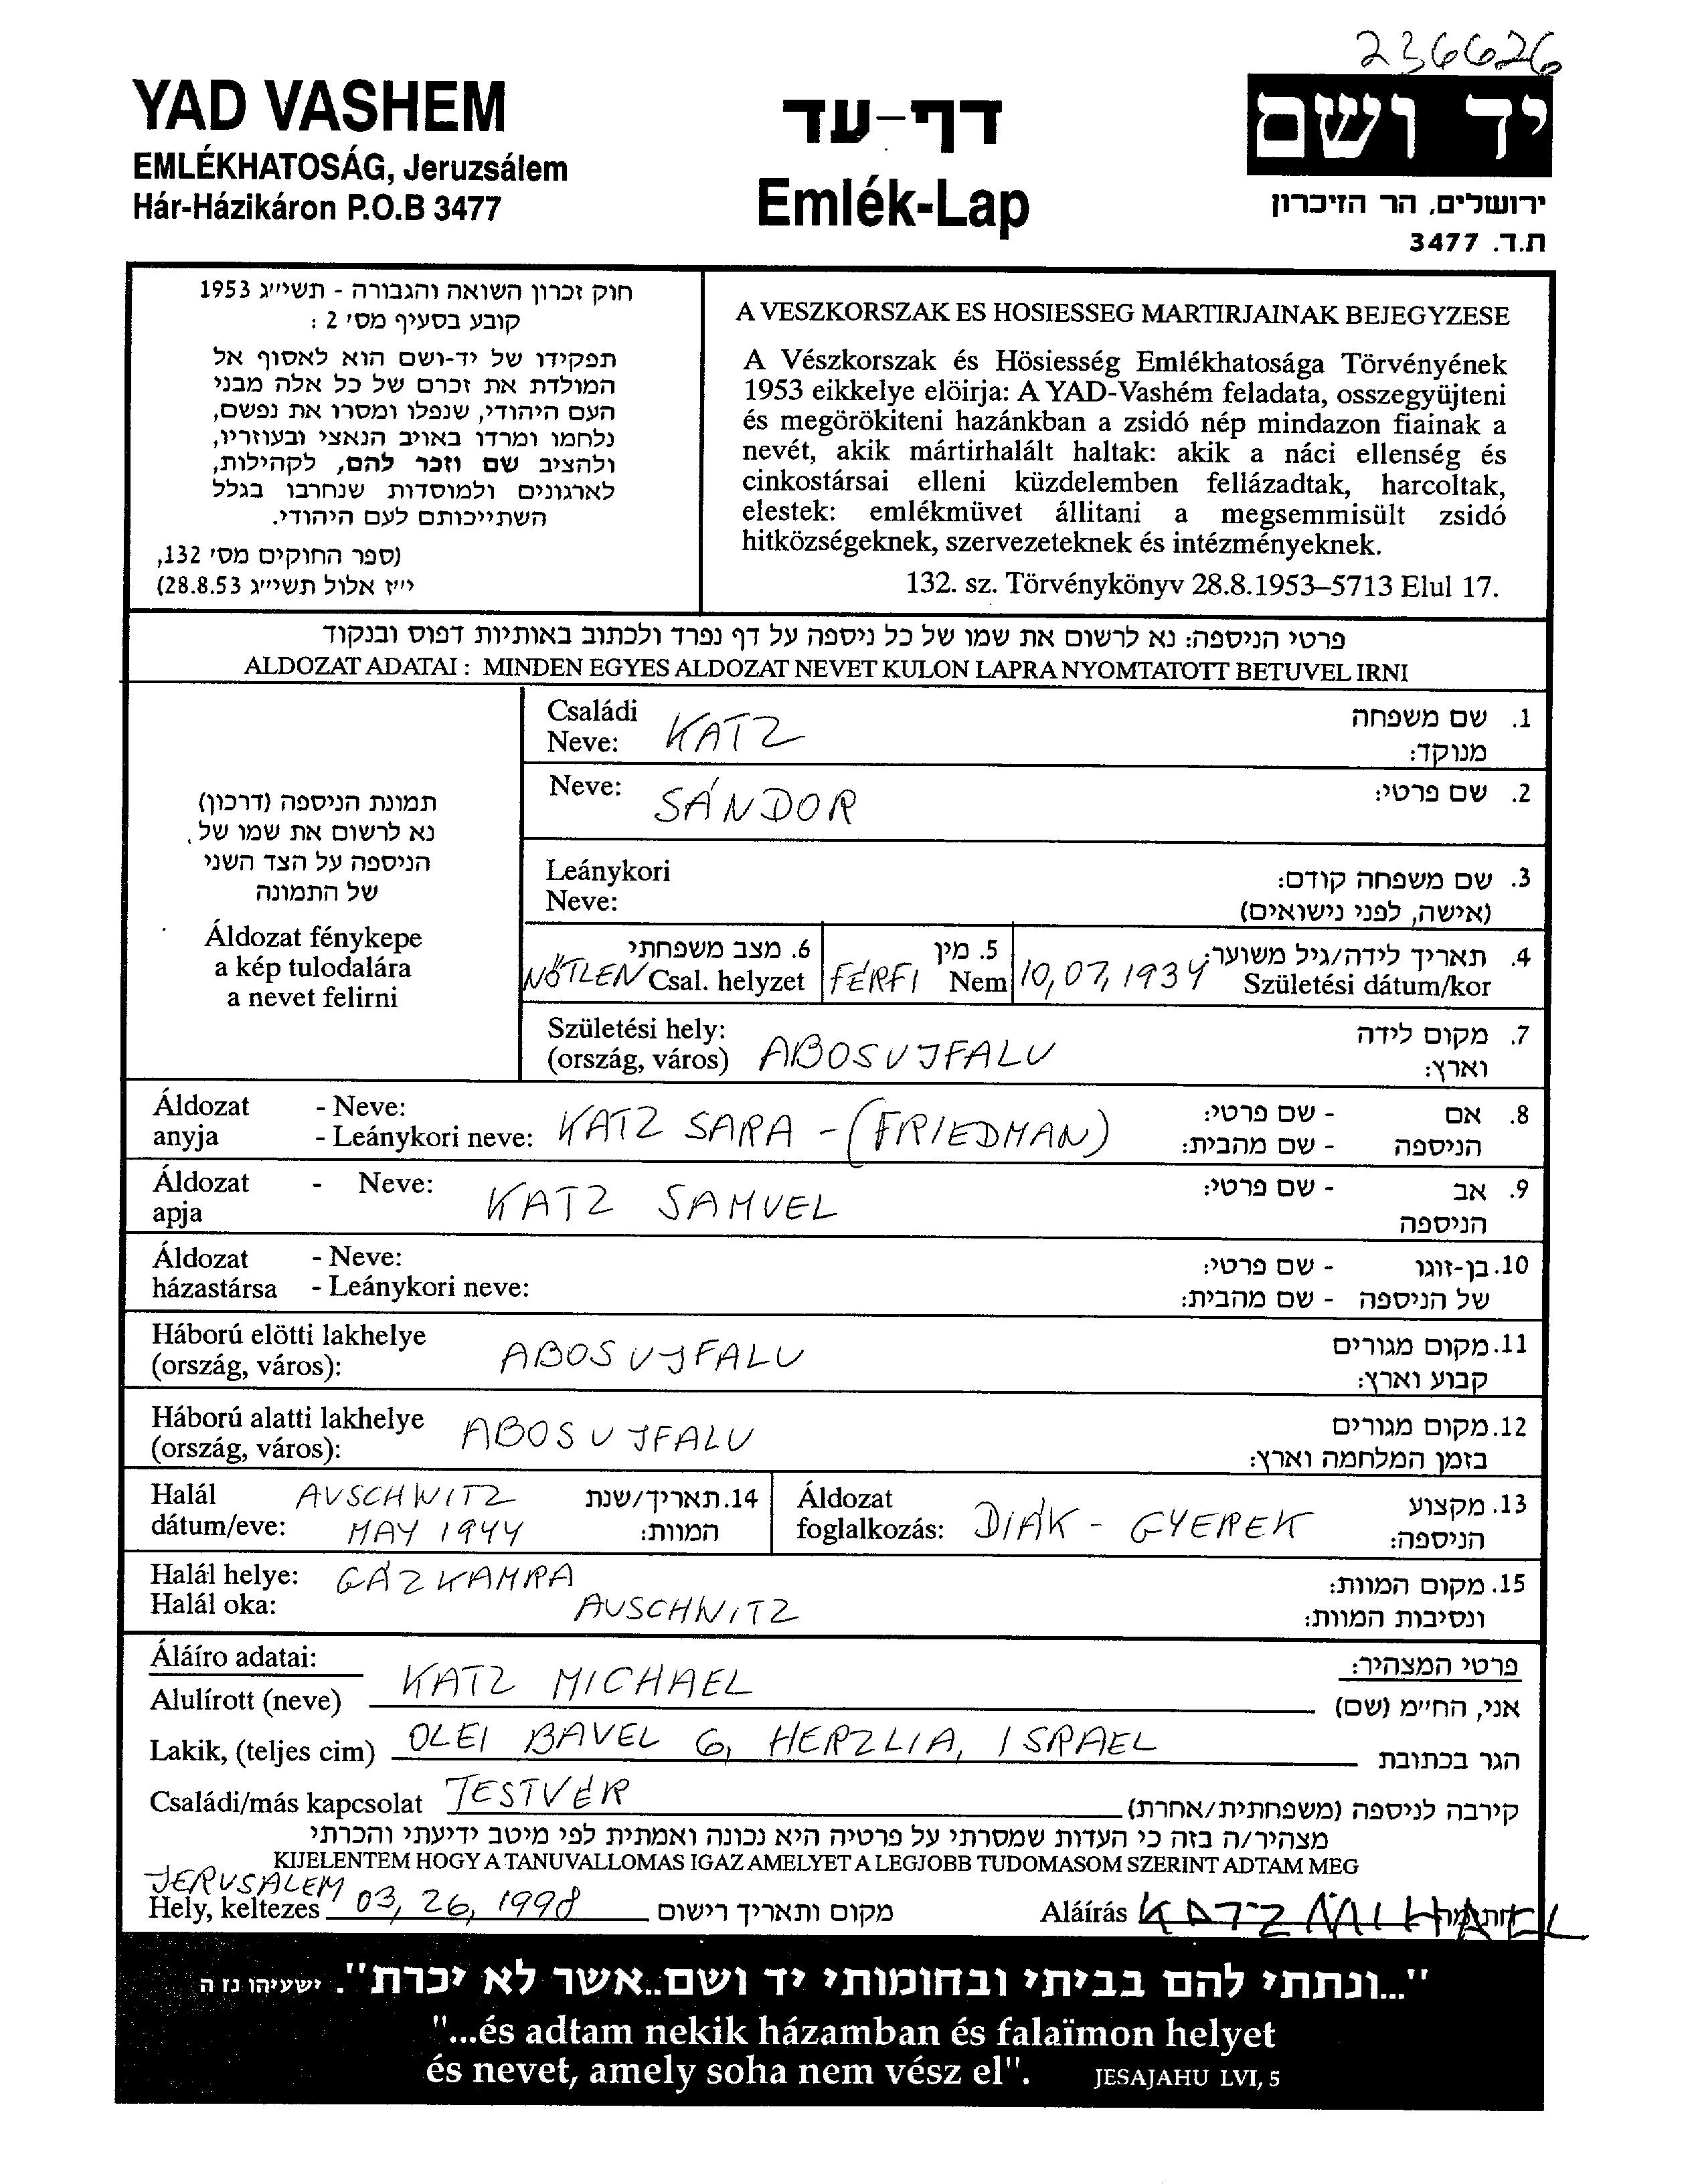 236626
YAD VASHEM
EMLÉKHATOSÁG, Jeruzsálem
Hár-Házikáron P.O.B 3477
דף-עד
Emlék-Lap
יד ושם
ירושלים, הר הזיכרון
ת.ד. 3477
חוק זכרון השואה והגבורה - תשי״ג 1953
קובע בסעיף מס׳ 2 :
תפקידו של יד-ושם הוא לאסוף אל
המולדת את זכרם של כל אלה מבני
העם היהודי, שנפלו ומסרו את נפשם,
נלחמו ומרדו באויב הנאצי ובעוזריו,
ולהציב שם וזכר להם, לקהילות,
לארגונים ולמוסדות שנחרבו בגלל
השתייכותם לעם היהודי.
(ספר החוקים מס׳ 132,
י״ז אלול תשי״ג 28.8.53)
A VESZKORSZAK ES HOSIESSEG MARTIRJAINAK BEJEGYZESE
A Vészkorszak és Hösiesség Emlékhatosága Törvényének
1953 eikkelye elöirja: A YAD-Vashém feladata, osszegyüjteni
és megörökiteni hazánkban a zsidó nép mindazon fiainak a
nevét, akik mártirhalált haltak: akik a náci ellenség és
cinkostársai elleni küzdelemben fellázadtak, harcoltak,
elestek: emlékmüvet állitani a megsemmisült zsidó
hitközségeknek, szervezeteknek és intézményeknek.
132. sz. Törvénykönyv 28.8.1953–5713 Elul 17.
פרטי הניספה: נא לרשום את שמו של כל ניספה על דף נפרד ולכתוב באותיות דפוס ובנקוד
ALDOZAT ADATAI : MINDEN EGYES ALDOZAT NEVET KULON LAPRA NYOMTATOTT BETUVEL IRNI
תמונת הניספה (דרכון)
נא לרשום את שמו של
הניספה על הצד השני
של התמונה
Áldozat fénykepe
a kép tulodalára
a nevet felirni
Családi
Neve: KATZ
1. שם משפחה
מנוקד:
Neve: SÁNDOR
2. שם פרטי:
Leánykori
Neve:
3. שם משפחה קודם:
(אישה, לפני נישואים)
6. מצב משפחתי
NŐTLEN Csal. helyzet
5. מין
FÉRFI Nem
4. תאריך לידה/גיל משוער:
10,07,1934 Születési dátum/kor
Születési hely:
(ország, város) ABOSUJFALU
7. מקום לידה
וארץ:
Áldozat - Neve:
anyja - Leánykori neve: KATZ SARA - (FRIEDMAN)
8. אם - שם פרטי:
הניספה - שם מהבית:
Áldozat - Neve:
apja KATZ SAMUEL
9. אב - שם פרטי:
הניספה
Áldozat - Neve:
házastársa - Leánykori neve:
10. בן-זוגו - שם פרטי:
של הניספה - שם מהבית:
Háború elötti lakhelye
(ország, város): ABOSUJFALU
11. מקום מגורים
קבוע וארץ:
Háború alatti lakhelye
(ország, város): ABOSUJFALU
12. מקום מגורים
בזמן המלחמה וארץ:
Halál AUSCHWITZ
dátum/eve: MAY 1944
14. תאריך/שנת
המוות:
Áldozat
foglalkozás: DIÁK - GYEREK
13. מקצוע
הניספה:
Halál helye: GÁZKAMRA
Halál oka: AUSCHWITZ
15. מקום המוות:
ונסיבות המוות:
Áláíro adatai:
פרטי המצהיר:
Alulírott (neve) KATZ MICHAEL אני, הח״מ (שם)
Lakik, (teljes cim) OLEI BAVEL 6, HERZLIA, ISRAEL הגר בכתובת
Családi/más kapcsolat TESTVÉR קירבה לניספה (משפחתית/אחרת)
מצהיר/ה בזה כי העדות שמסרתי על פרטיה היא נכונה ואמתית לפי מיטב ידיעתי והכרתי
KIJELENTEM HOGY A TANUVALLOMAS IGAZ AMELYET A LEGJOBB TUDOMASOM SZERINT ADTAM MEG
JERUSALEM
Hely, keltezes 03, 26, 1998 מקום ותאריך רישום
Aláírás KATZ MIHAEL
"...ונתתי להם בביתי ובחומותי יד ושם..אשר לא יכרת". ישעיהו נז ה
"...és adtam nekik házamban és falaïmon helyet
és nevet, amely soha nem vész el". JESAJAHU LVI, 5